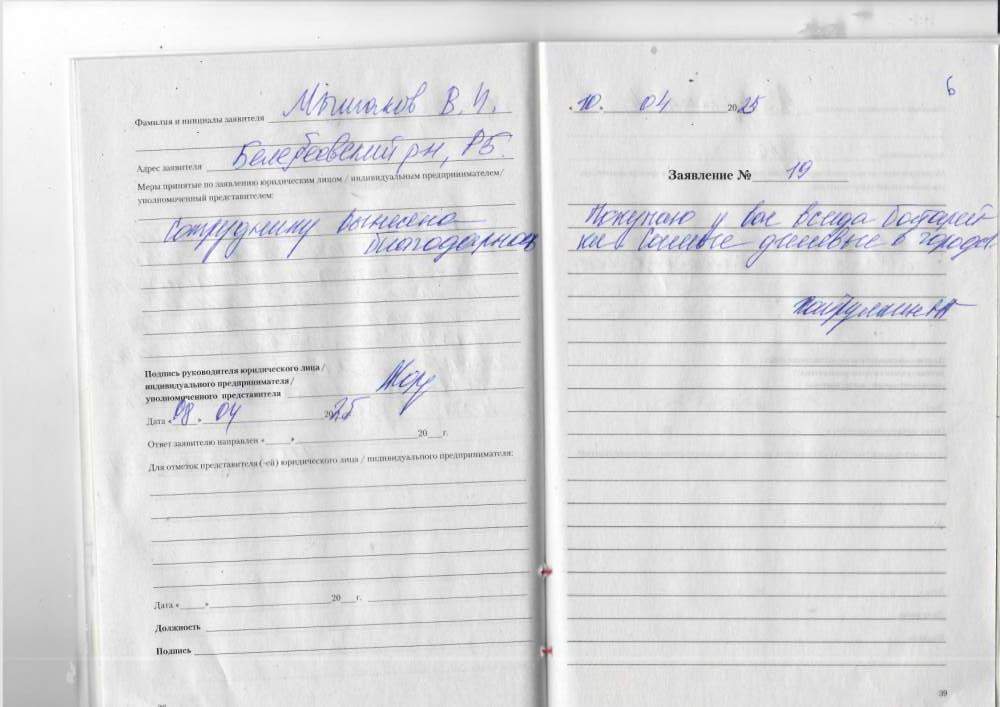 Фамилия и инициалы заявителя Мышаков В.И.
Адрес заявителя Белебеевский рн, РБ.
Меры принятые по заявлению юридическим лицом / индивидуальным предпринимателем/
уполномоченный представителем:
Сотруднику вынесена
благодарность
Подпись руководителя юридического лица /
индивидуального предпринимателя /
уполномоченного представителя
Дата «08» 04 2025
Ответ заявителю направлен «____»____ 20__г.
Для отметок представителя (-ей) юридического лица / индивидуального предпринимателя:
Дата «____»____ 20__г.
Должность
Подпись
6
10. 04 2025
Заявление № 19
Покупаю у вас всегда батарей
ки Самые дешевые в городе.
39